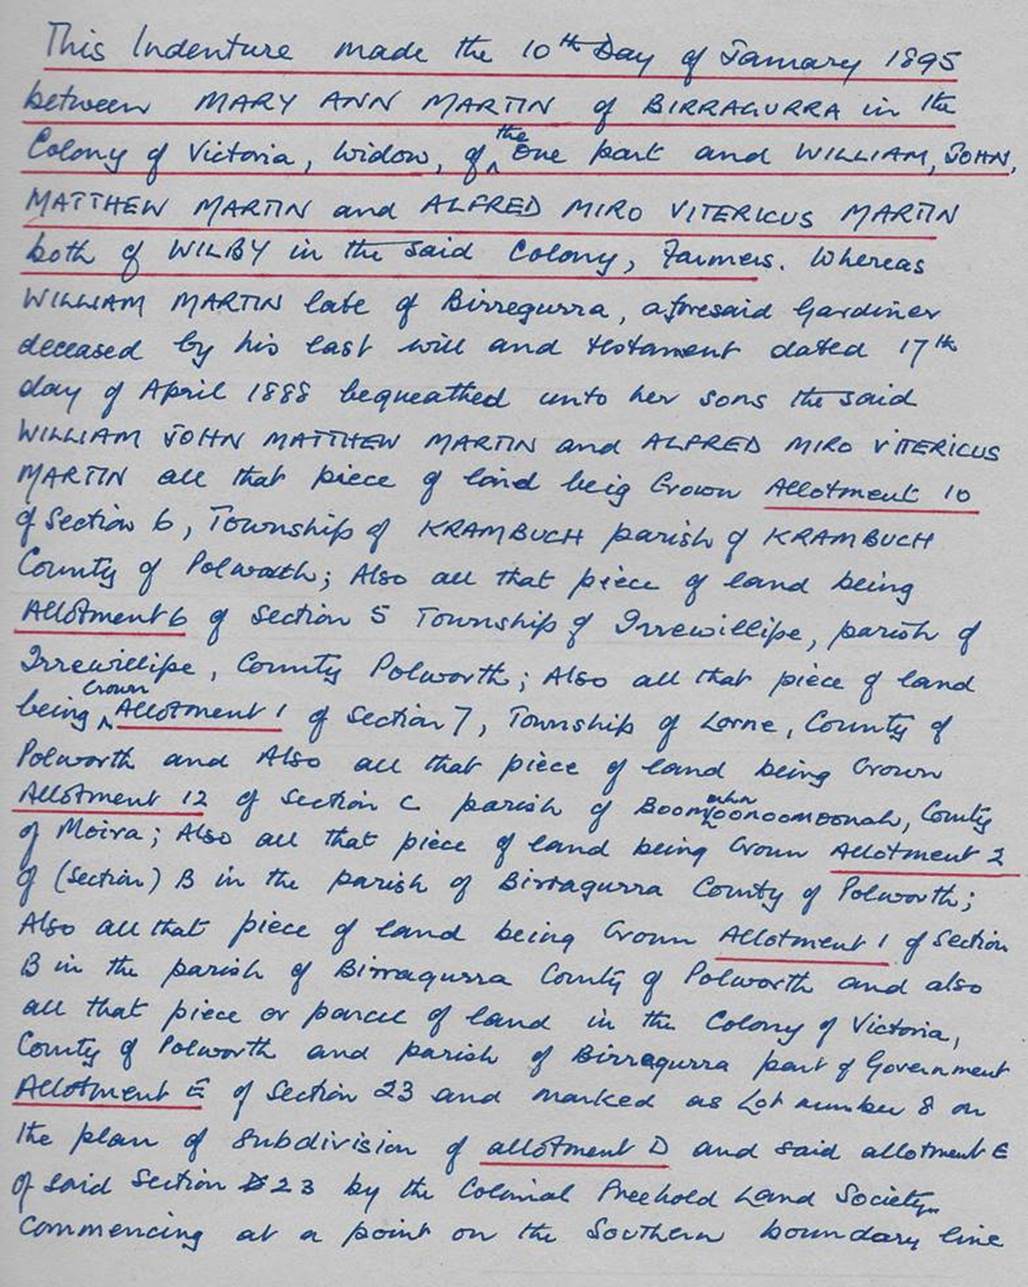 This Indenture made the 10th Day of January 1895
between MARY ANN MARTIN of BIRRAGURRA in the
Colony of Victoria, Widow, of the One part and WILLIAM, JOHN,
MATTHEW MARTIN and ALFRED MIRO VITERICUS MARTIN
both of WILBY in the said Colony, Farmers. Whereas
WILLIAM MARTIN late of Birregurra, aforesaid Gardiner
deceased by his last will and testament dated 17th
day of April 1888 bequeathed unto her sons the said
WILLIAM JOHN MATTHEW MARTIN and ALFRED MIRO VITERICUS
MARTIN all that piece of land beig Crown Allotment 10
of Section 6, Township of KRAMBUCH parish of KRAMBUCH
County of Polwarth; Also all that piece of land being
Allotment 6 of Section 5 Township of Irrewillipe, parish of
Irrewillipe, County Polworth; Also all that piece of land
being Crown Allotment 1 of Section 7, Township of Lorne, County of
Polworth and Also all that piece of land being Crown
Allotment 12 of Section C parish of , County
of Moira; Also all that piece of land being Crown Allotment 2
of (Section) B in the parish of Birragurra County of Polworth;
Also all that piece of land being Crown Allotment 1 of Section
B in the parish of Birragurra County of Polworth and also
all that piece or parcel of land in the Colony of Victoria,
County of Polworth and parish of Birragurra part of Government
Allotment E of Section 23 and marked as Lot number 8 on
the plan of subdivision of allotment D and said allotment E
of said Section 23 by the Colonial Freehold Land Society
Commencing at a point on the Southern boundary line